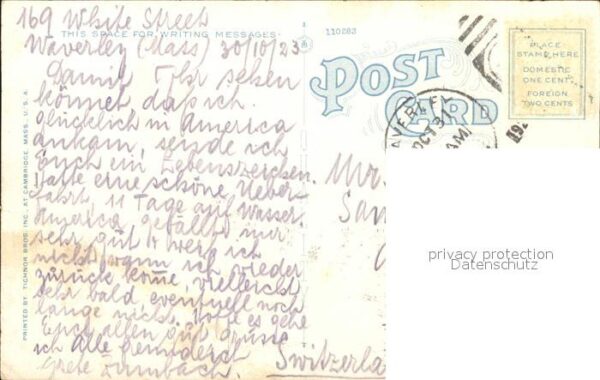 169 White Street
THIS SPACE FOR WRITING MESSAGES
Waverley (Mass) 30/10/23
Damit Ihr sehen
könnet dass ich
glücklich in America
ankam, sende ich
Euch ein Lebenszeichen.
Hatte eine schöne Ueber-
fahrt, 11 Tage auf Wasser.
America gefällt mir
sehr gut & weiss ich
nicht wann ich wieder
zurück kome, vielleicht
sehr bald eventuell noch
lange nicht. Hoffe es gehe
Euch allen gut. Grüsse
ich Alle freundlich
Grete
PRINTED BY TICHNOR BROS. INC., AT CAMBRIDGE, MASS., U. S. A.
110283
POST
CARD
PLACE
STAMP HERE
DOMESTIC
ONE CENT
FOREIGN
TWO CENTS
WAVERLEY
OCT 31
AM
192
Mr.
San
Switzerla
privacy protection
Datenschutz